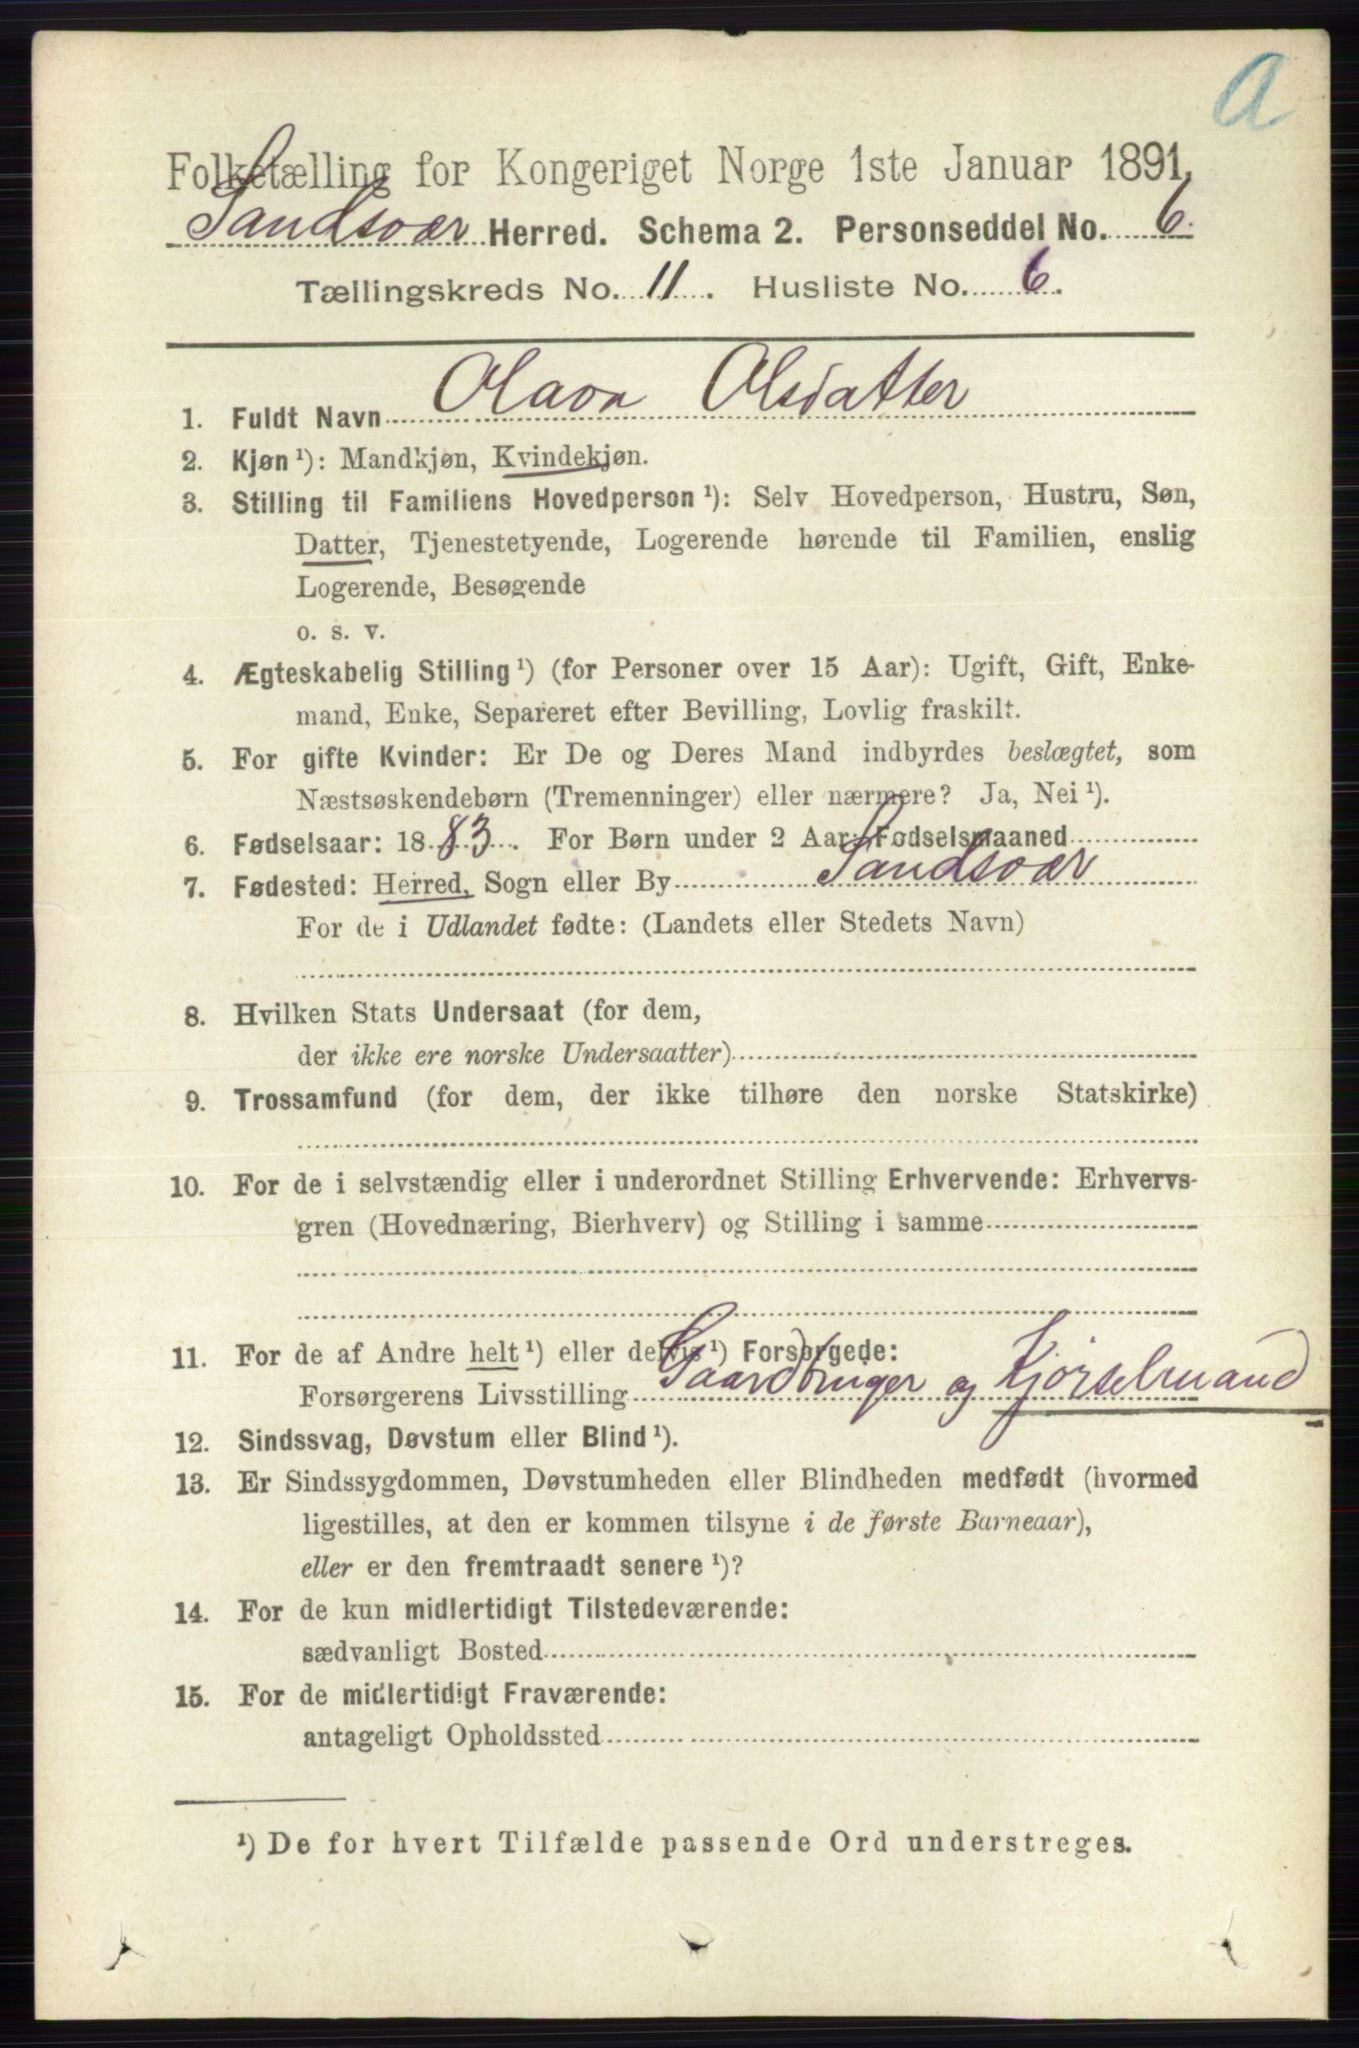 A
Folketælling for Kongeriget Norge 1ste Januar 1891.
Sandsvær Herred. Schema 2. Personseddel No. 6.
Tællingskreds No. 11. Husliste No. 6.
1. Fuldt Navn Olava Olsdatter
2. Kjøn¹): Mandkjøn, Kvindekjøn.
3. Stilling til Familiens Hovedperson¹): Selv Hovedperson, Hustru, Søn,
Datter, Tjenestetyende, Logerende hørende til Familien, enslig
Logerende, Besøgende
o. s. v.
4. Ægteskabelig Stilling¹) (for Personer over 15 Aar): Ugift, Gift, Enke-
mand, Enke, Separeret efter Bevilling, Lovlig fraskilt.
5. For gifte Kvinder: Er De og Deres Mand indbyrdes beslægtet, som
Næstsøskendebørn (Tremenninger) eller nærmere? Ja, Nei¹).
6. Fødselsaar: 1883. For Børn under 2 Aar: Fødselsmaaned
7. Fødested: Herred, Sogn eller By Sandsvær
For de i Udlandet fødte: (Landets eller Stedets Navn)
8. Hvilken Stats Undersaat (for dem,
der ikke ere norske Undersaatter)
9. Trossamfund (for dem, der ikke tilhøre den norske Statskirke)
10. For de i selvstændig eller i underordnet Stilling Erhvervende: Erhvervs-
gren (Hovednæring, Bierhverv) og Stilling i samme
11. For de af Andre helt¹) eller delvis¹) Forsørgede:
Forsørgerens Livsstilling Gaardbruger og Kjørselmand
12. Sindssvag, Døvstum eller Blind¹).
13. Er Sindssygdommen, Døvstumheden eller Blindheden medfødt (hvormed
ligestilles, at den er kommen tilsyne i de første Barneaar),
eller er den fremtraadt senere¹)?
14. For de kun midlertidigt Tilstedeværende:
sædvanligt Bosted
15. For de midlertidigt Fraværende:
antageligt Opholdssted
¹) De for hvert Tilfælde passende Ord understreges.